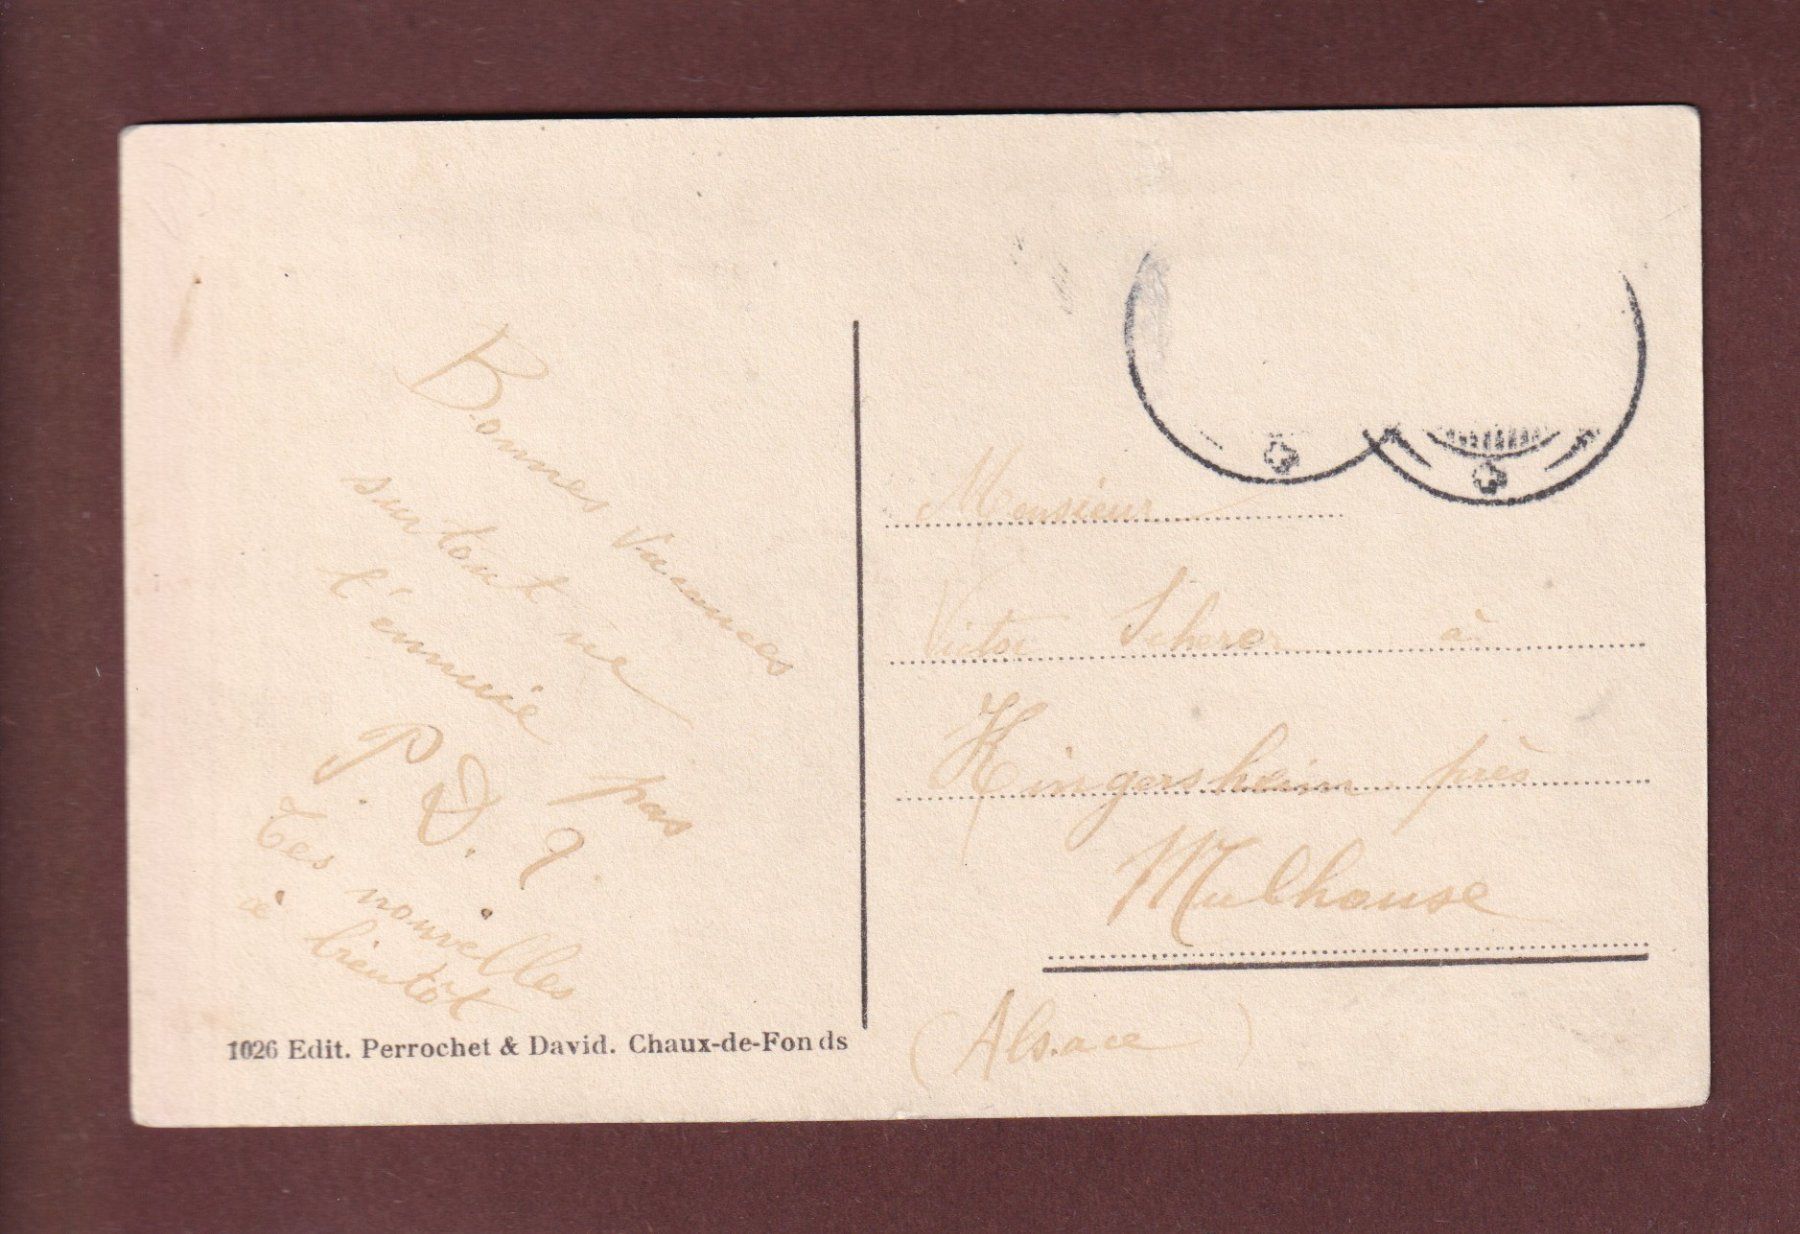 Bonnes vacances
surtout ne
t'ennuie pas
P. D. 2.
Tes nouvelles
à bientôt
1026 Edit. Perrochet & David. Chaux-de-Fonds
Monsieur
Victor Scherer à
Kingersheim près
Mulhouse
(Alsace)